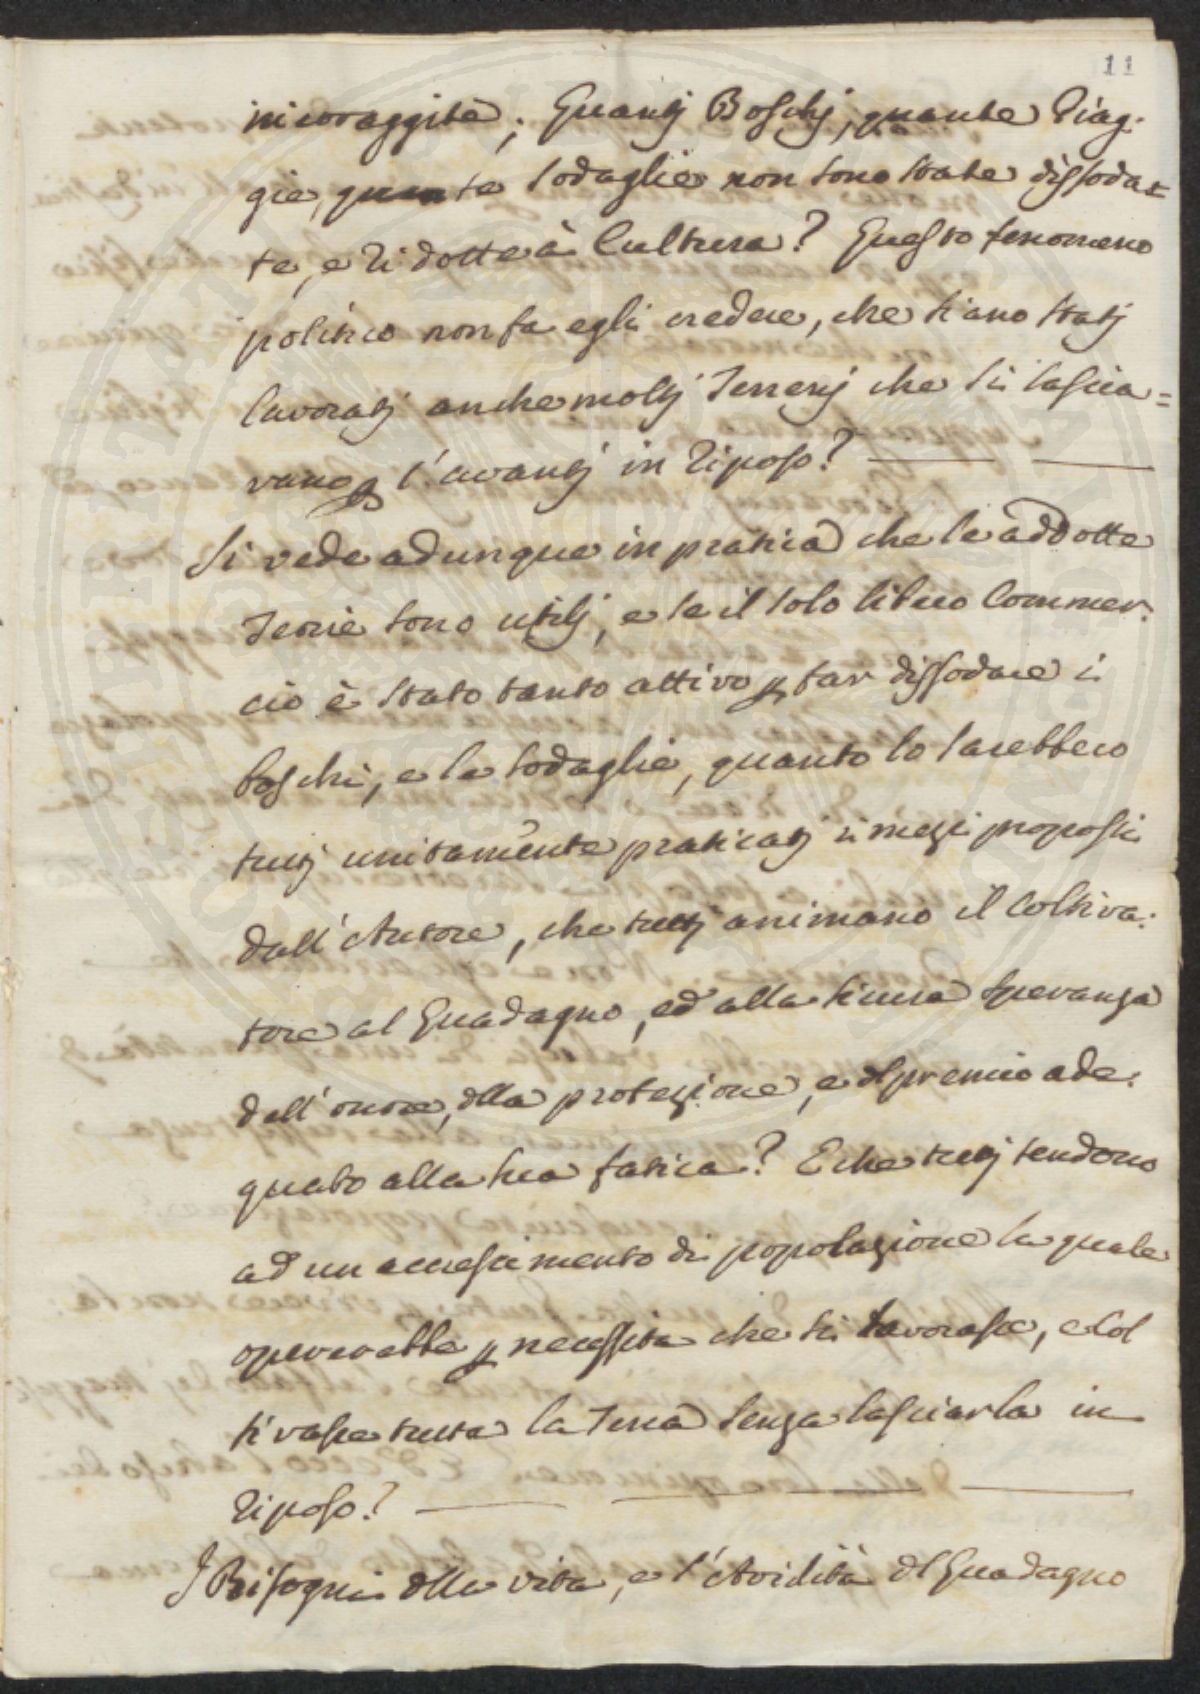 11
incoraggite; Quantj Boschj, quante Piag.
gie, quante sodaglie non sono state dissoda=
te, e ridotte à Cultura? Questo fenomeno
politico non fa egli credere, che siano statj
lavoratj anche moltj Terrenj che si lascia=
vano p l'avantj in riposo?
Si vede adunque in pratica che le addotte
Teorie sono utilj, e se il solo libero Commer.
cio è stato tanto attivo p far dissodare i
boschi, e le sodaglie, quanto lo sarebbero
tuttj unitamente praticatj i mezzi proposti
dall'Autore, che tuttj animano il Coltiva.
tore al Guadagno, ed alla sicura speranza
dell'onore, dlla protezione, e dl premio ade.
quato alla sua fatica? E che tuttj tendono
ad un accrescimento di popolazione la quale
opererebbe p necessità che si lavorasse, e Col
tivasse tutta la Terra senza lasciarla in
riposo?
I Bisogni dlla vita, e l'Avidità dl Guadagno